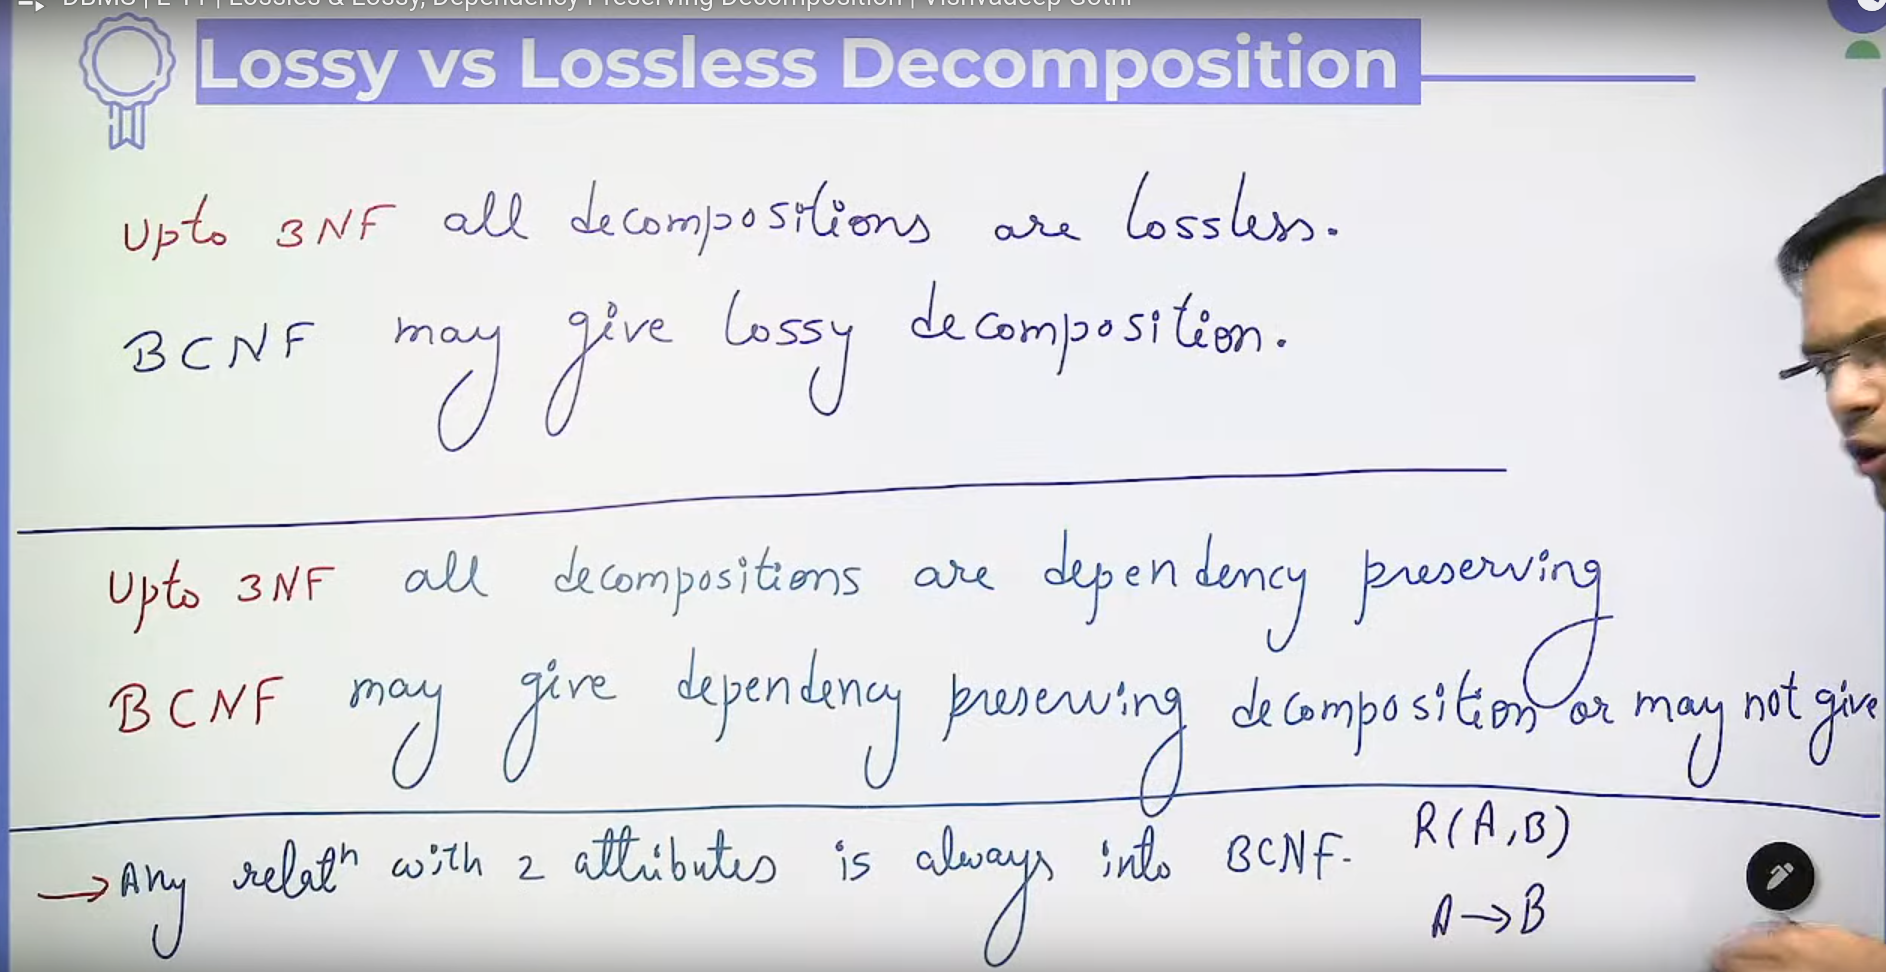 DBMS | L 11 | Lossles & Lossy, Dependency Preserving Decomposition | Vishvadeep Gothi
Lossy vs Lossless Decomposition
Upto 3NF all decompositions are lossless.
BCNF may give lossy decomposition.
Upto 3NF all decompositions are dependency preserving
BCNF may give dependency preserving decomposition or may not give
→ Any relatⁿ with 2 attributes is always into BCNF. R(A,B)
A→B